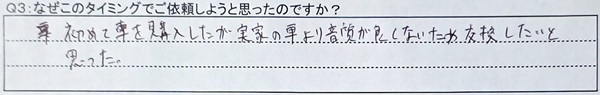 Q3：なぜこのタイミングでご依頼しようと思ったのですか？
初めて車を購入したが実家の車より音質が良くないため交換したいと
思った。